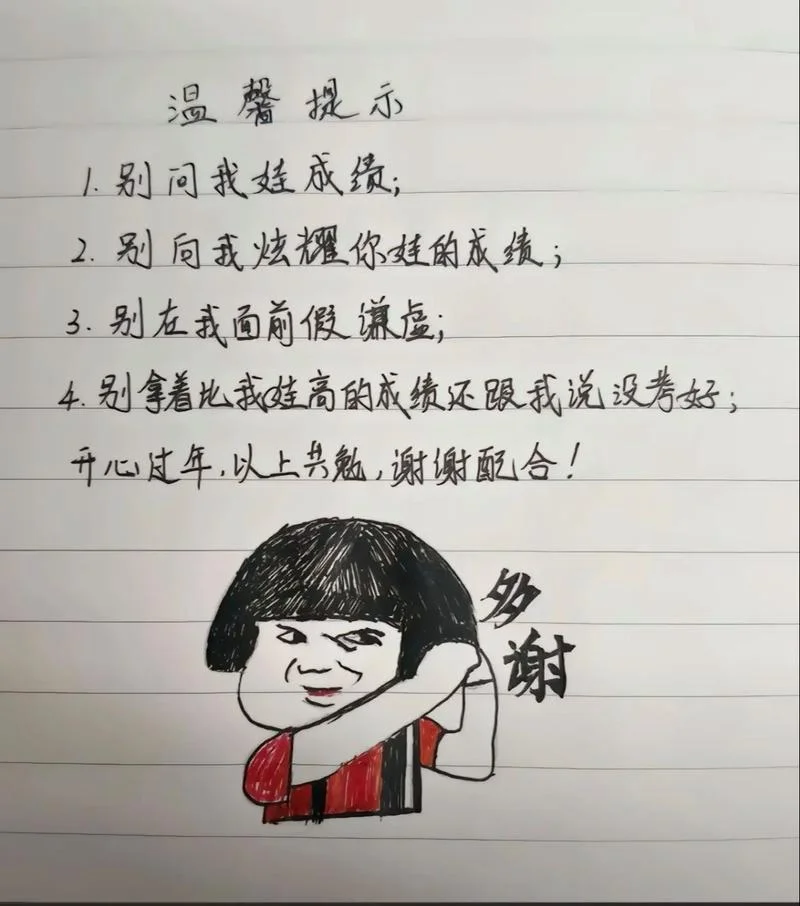 温馨提示
1. 别问我娃成绩;
2. 别向我炫耀你娃的成绩;
3. 别在我面前假谦虚;
4. 别拿着比我娃高的成绩还跟我说没考好;
开心过年,以上共勉,谢谢配合!
多
谢